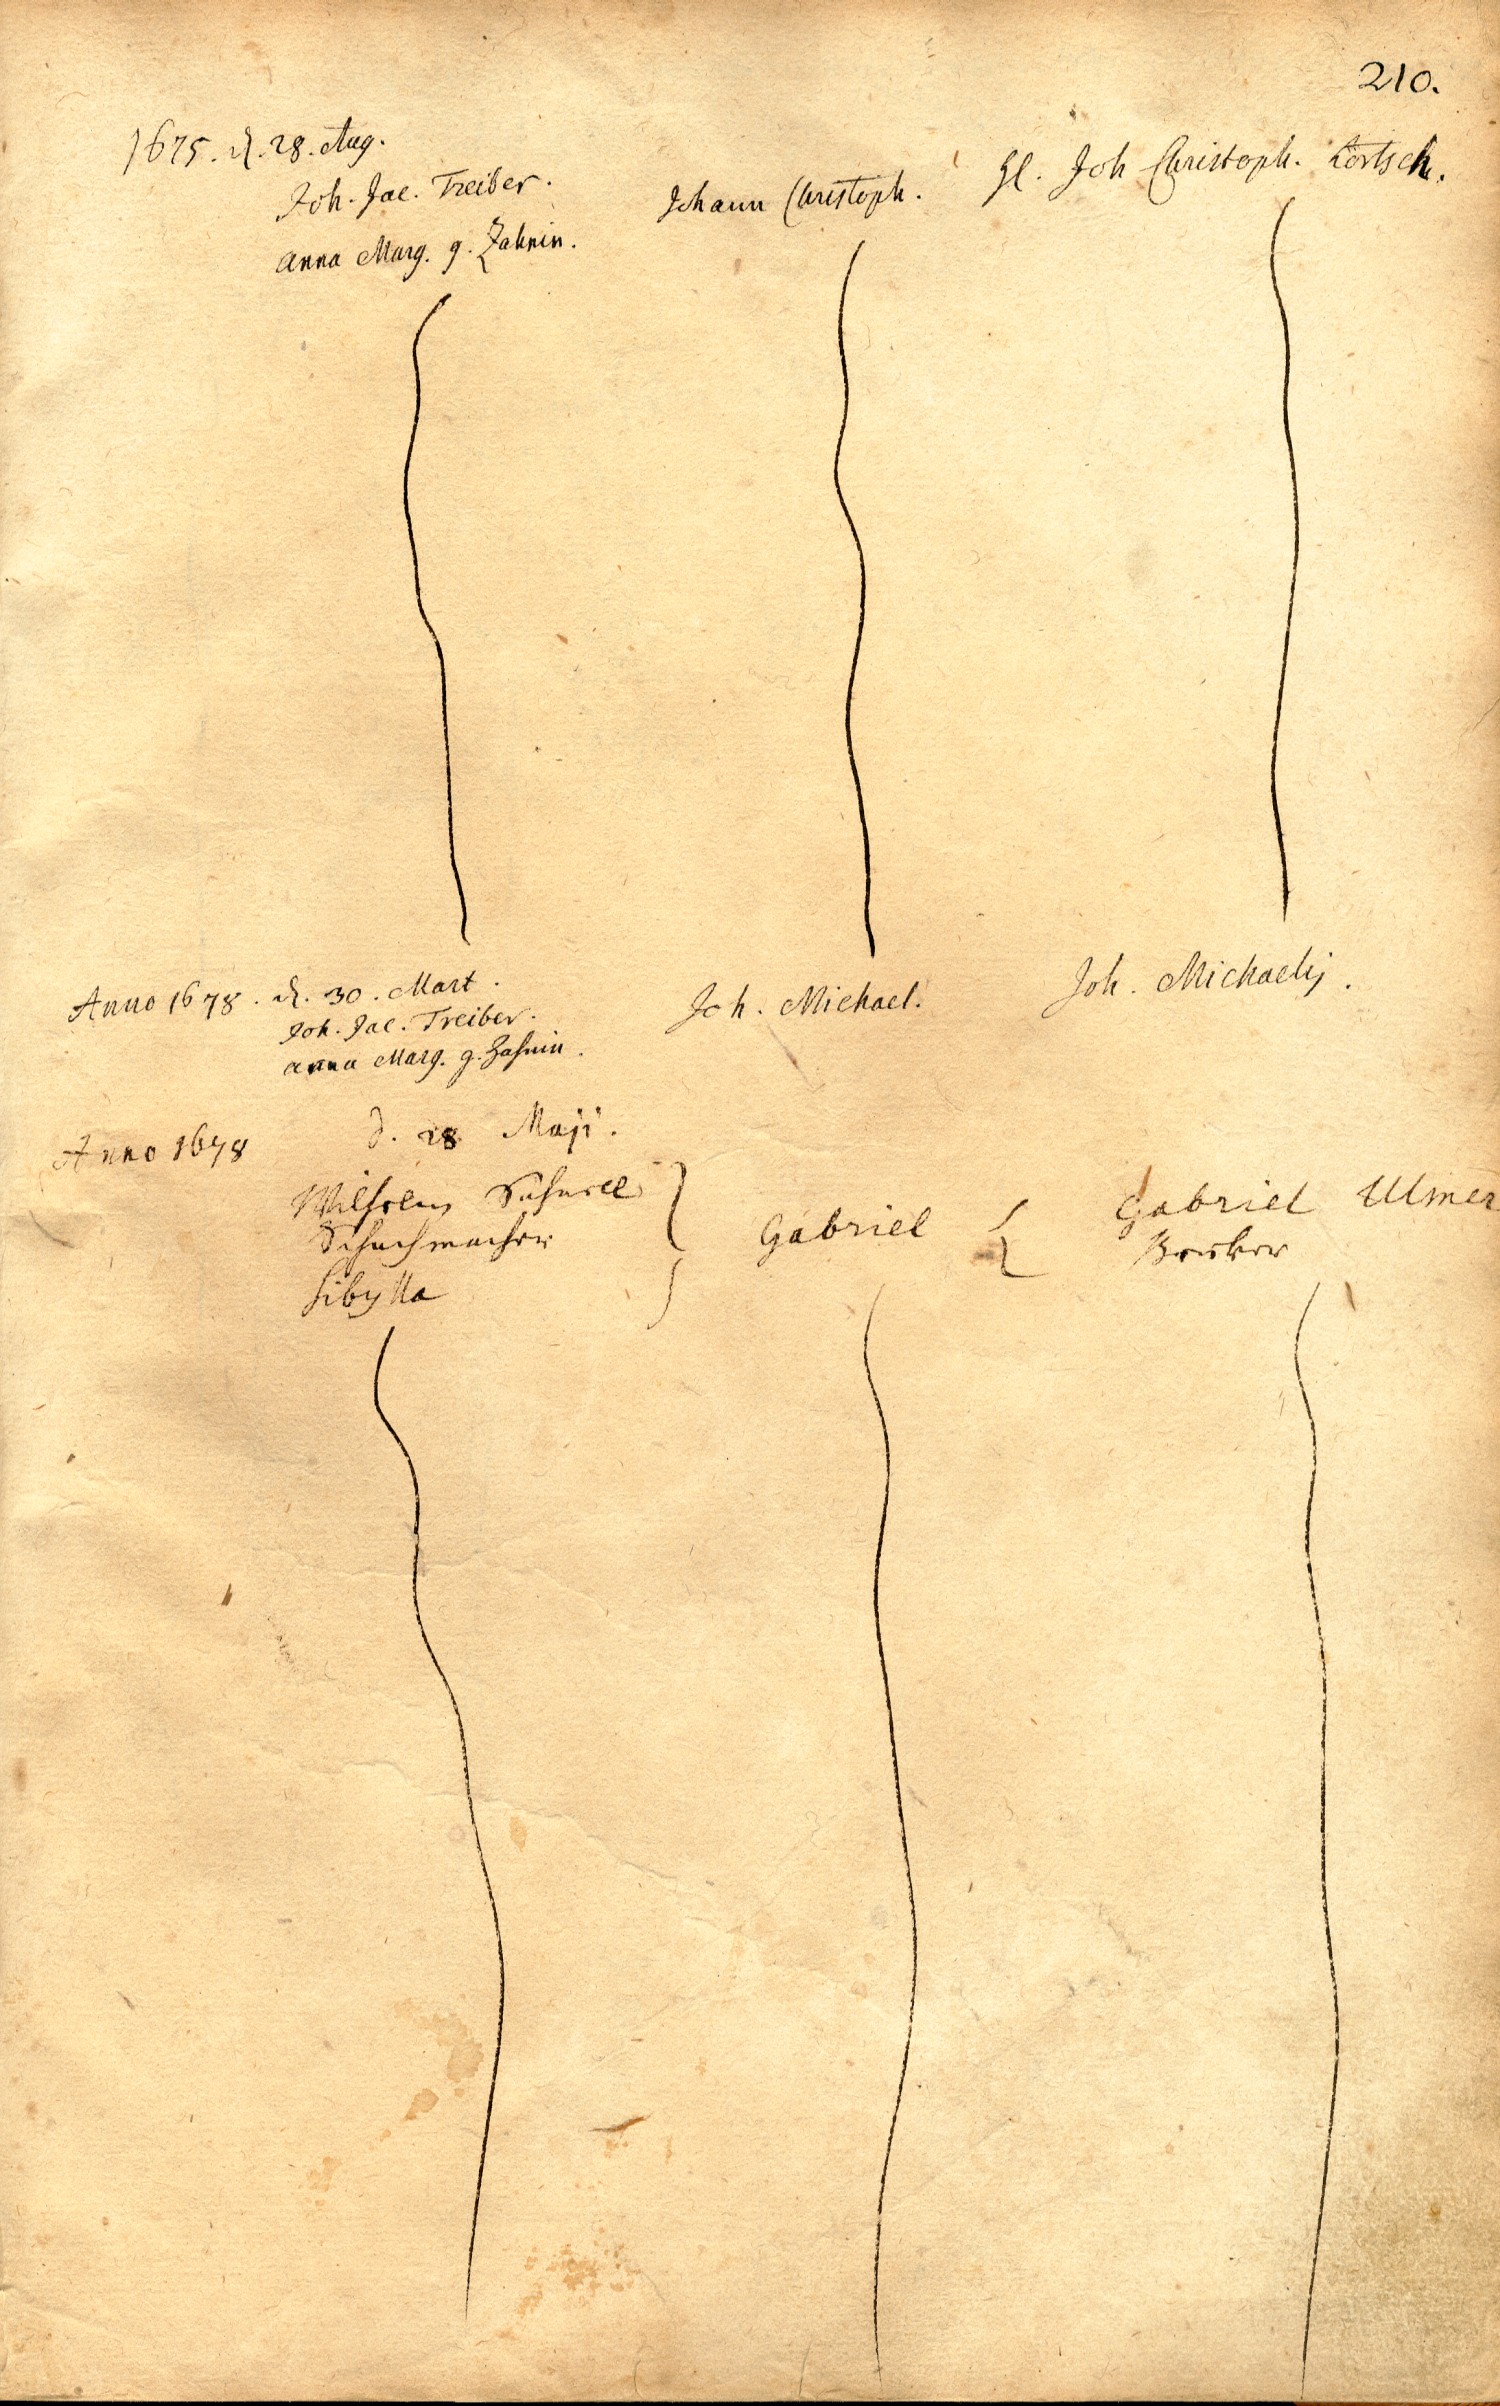 210.
1675. d. 28. Aug.
Joh. Jac. Treiber.
Anna Marg. g. Zahnin.
Johann Christoph.
H. Joh Christoph. Körtsch.
Anno 1678. d. 30. Mart.
Joh. Jac. Treiber.
Anna Marg. g. Zahnin.
Joh. Michael.
Joh. Michaelis.
Anno 1678
d. 28 Maji.
Wilhelm Schnell
Schuchmacher
Sibylla
Gabriel
Gabriel Ulmer
Becker